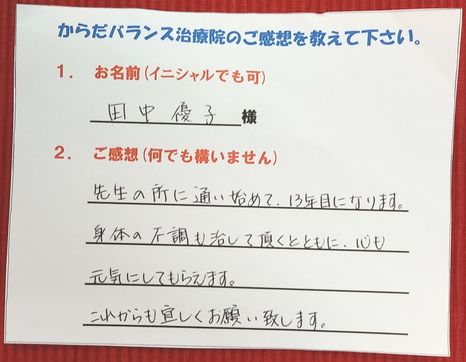 からだバランス治療院のご感想を教えて下さい。
1. お名前(イニシャルでも可)
田中優子 様
2. ご感想(何でも構いません)
先生の所に通い始めて、13年目になります。
身体の不調も治して頂くとともに、心も
元気にしてもらえます。
これからも宜しくお願い致します。